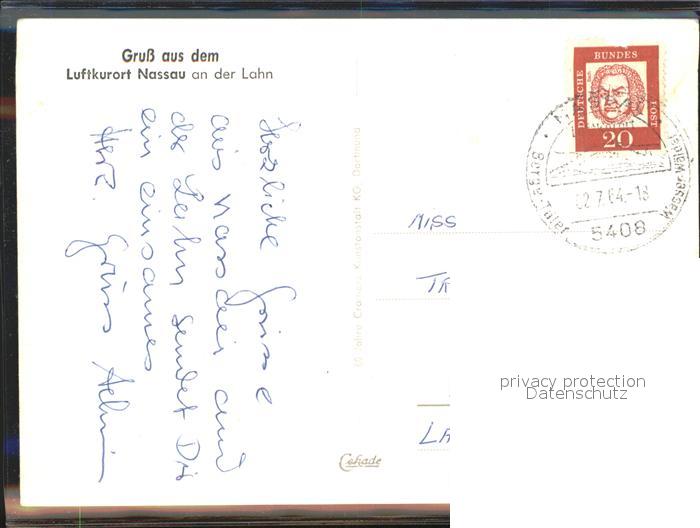 Gruß aus dem
Luftkurort Nassau an der Lahn
Herzliche Grüsse
aus Nassau und
der Lahn sendet Dir
ein einsames
Herz. Gruss
60 Jahre Cramers Kunstanstalt KG, Dortmund
Cekade
DEUTSCHE
BUNDES
POST
20
Berge Täler
Wälder Wasser
02.7.64.-18
5408
MISS
TR
LA
privacy protection
Datenschutz